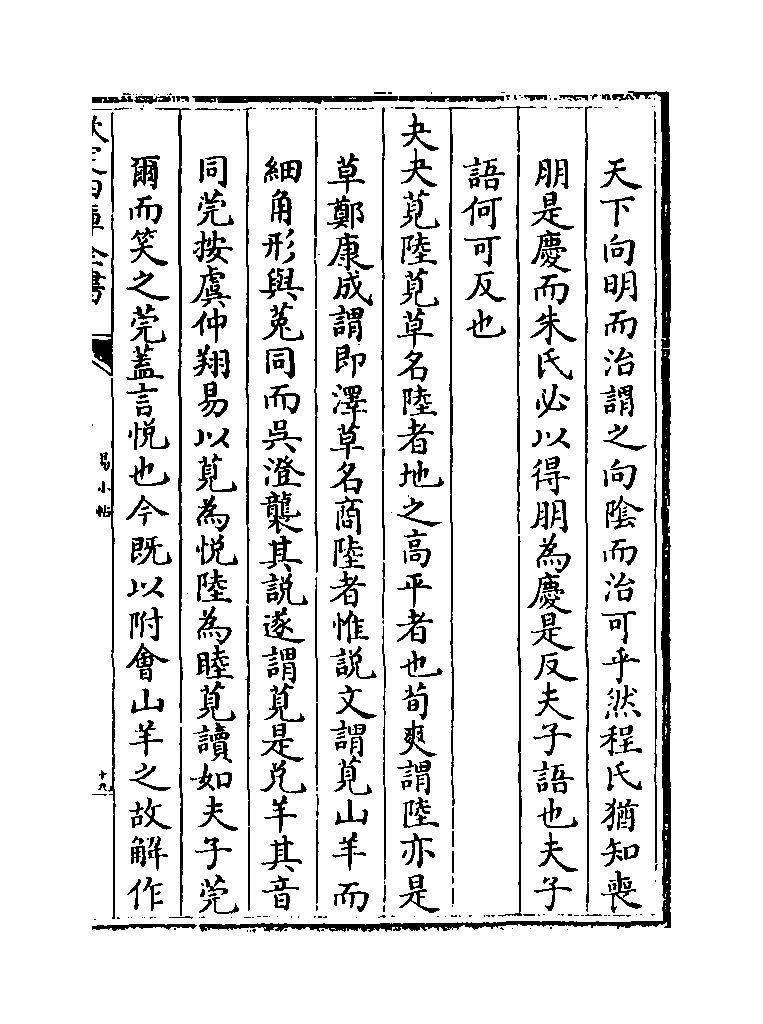 天下向明而治謂之向隂而治可乎然程氏猶知喪
朋是慶而朱氏必以得朋為慶是反夫子語也夫子
語何可反也
夬夬莧陸莧草名陸者地之高平者也荀爽謂陸亦是
草鄭康成謂即澤草名商陸者惟説文謂莧山羊而
細角形與菟同而吳澄襲其説遂謂莧是兌羊其音
同莞按虞仲翔易以莧為悦陸為睦莧讀如夫子莞
爾而笑之莞蓋言悦也今既以附會山羊之故解作
欽定四庫全書
易小帖
十九